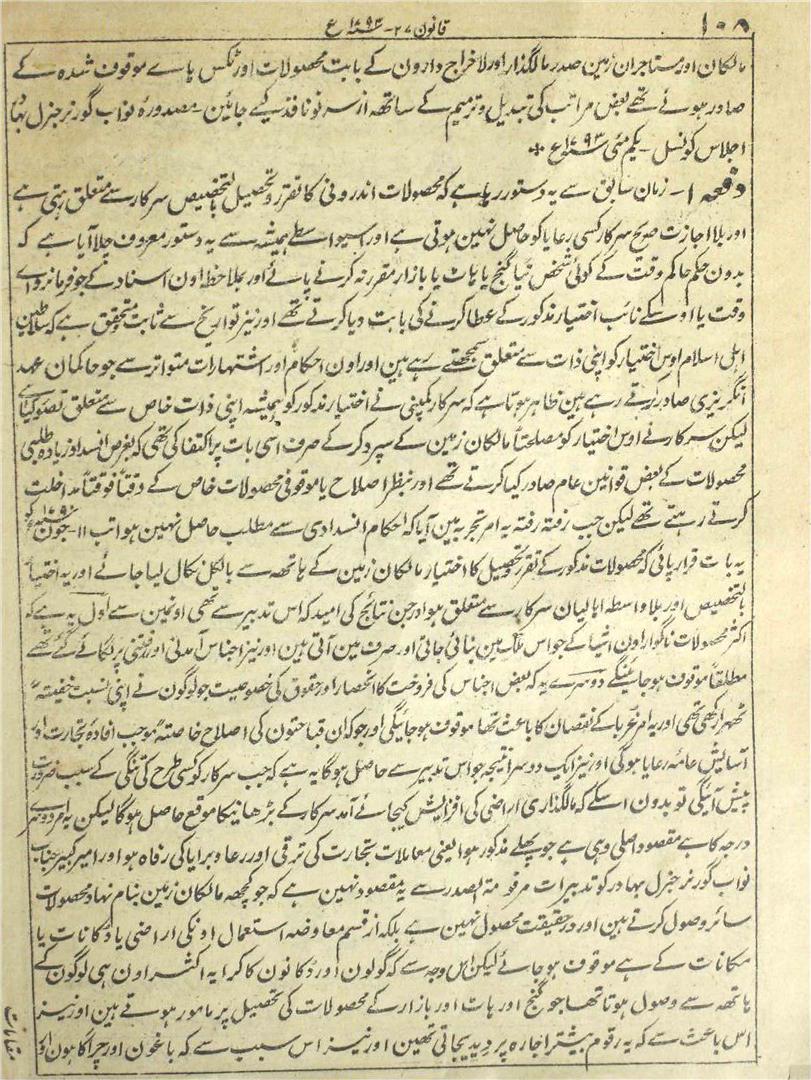 ۱۰۸
قانون ۲۷ - سنہ ۱۷۹۳ ع
مالکان اور مستاجران زمین صدر مالگذار اور لاخراج دارون کے بابت محصولات اور ٹکس ہاے موقوف شدہ کے
صادر ہوئے تھے بعض مراتب کی تبدیل و ترمیم کے ساتھہ از سر نو نافذ کیے جائین - مصدورہ نواب گورنر جنرل بہا
اجلاس کونسل - یکم مئی سنہ ۱۷۹۳ ع
دفعہ ۱ - زمان سابق سے یہ دستور رہا ہے کہ محصولات اندرونی کا تقرر و تحصیل بالتخصیص سرکار سے متعلق رہتی ہے
اور بلا اجازت صریح سرکار کسی رعایا کو حاصل نہین ہوتی ہے اور اسیواسطے ہمیشہ سے یہ دستور معروف چلا آیا ہے کہ
بدون حکم حاکم وقت کے کوئی شخص نیا گنج یا ہاٹ یا بازار مقرر نہ کرنے پائے اور بملاحظہ اون اسناد کے جو فرمانرواے
وقت یا اوسکے نائب اختیار مذکور کے عطا کرنے کی بابت دیا کرتے تھے اور نیز تواریخ سے ثابت و متحقق ہے کہ سلاطین
اہل اسلام اوس اختیار کو اپنی ذات سے متعلق سمجھتے رہے ہین اور اون احکام اور اشتہارات متواتر سے جو حاکمان عہد
انگریزی صادر کرتے رہے ہین ظاہر ہوتا ہے کہ سرکار کمپنی نے اختیار مذکور کو ہمیشہ اپنی ذات خاص سے متعلق تصور کیا ہے
لیکن سرکار نے اوس اختیار کو مصلحتاً مالکان زمین کے سپرد کر کے صرف اسی بات پر اکتفا کی تھی کہ بغرض انسداد زیادہ طلبی
محصولات کے بعض قوانین عام صادر کیا کرتے تھے اور بنظر اصلاح یا موقوفی محصولات خاص کے وقتاً فوقتاً مداخلت
کرتے رہتے تھے لیکن جب رفتہ رفتہ یہ امر تجربہ مین آیا کہ احکام انسدادی سے مطلب حاصل نہین ہوا تب ۱۱ - جون سنہ ۱۷۹۰ ع کو
یہ بات قرار پائی کہ محصولات مذکور کے تقرر و تحصیل کا اختیار مالکان زمین کے ہاتھہ سے بالکل نکال لیا جائے اور یہ اختیار
بالتخصیص اور بلا واسطہ اہالیان سرکار سے متعلق ہو اور جن نتائج کی امید کہ اس تدبیر سے تھی اونمین سے اول یہ ہے کہ
اکثر محصولات ناگوار اون اشیا کے جو اس ملک مین بنائی جاتی اور صرف مین آتی ہین اور نیز اجناس آمدنی اور رفتنی پر لگائے گئے تھے
مطلقاً موقوف ہو جاینگے دوسرے یہ کہ بعض اجناس کی فروخت کا انحصار اور حقوق کی خصوصیت جو لوگون نے اپنی نسبت خفیتہً
ٹھہرا رکھی تھی اور یہ امر غربا کے نقصان کا باعث تھا موقوف ہو جائیگی اور جو کہ ان قباحتون کی اصلاح خاصتہً موجب افادہ تجارت اور
آسایش عامہ رعایا ہوگی اور نیز ایک دوسرا نتیجہ جو اس تدبیر سے حاصل ہوگا یہ ہے کہ جب سرکار کو کسی طرح کی تنگی کے سبب ضرورت
پیش آئیگی تو بدون اسکے کہ مالگذاری اراضی کی افزایش کیجائے آمد سرکار کے بڑھانیکا موقع حاصل ہوگا لیکن یہ امر دوسرے
درجہ کا ہے مقصود اصلی وہی ہے جو پہلے مذکور ہوا یعنی معاملات تجارت کی ترقی اور رعا و برایا کی رفاہ ہو اور امیر کبیر جناب
نواب گورنر جنرل بہادر کو تدبیرات مرقومۃ الصدر سے یہ مقصود نہین ہے کہ جو کچھہ مالکان زمین بنام نہاد محصولات
سائر وصول کرتے ہین اور درحقیقت محصول نہین ہے بلکہ از قسم معاوضہ استعمال اونکی اراضی یا دکانات یا
مکانات کے ہے موقوف ہو جائے لیکن اس وجہ سے کہ گولون اور دکانون کا کرایہ اکثر اون ہی لوگون کے
ہاتھہ سے وصول ہوتا تھا جو گنج اور ہاٹ اور بازار کے محصولات کی تحصیل پر مامور ہوتے ہین اور نیز
اس باعث سے کہ یہ رقوم بیشتر اجارہ پر دیدیجاتی تھین اور نیز اس سبب سے کہ باغون اور چراگاہون اور